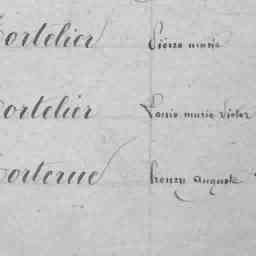 ortelier Pierre marie
ortelier Louis marie victor
orterue auguste